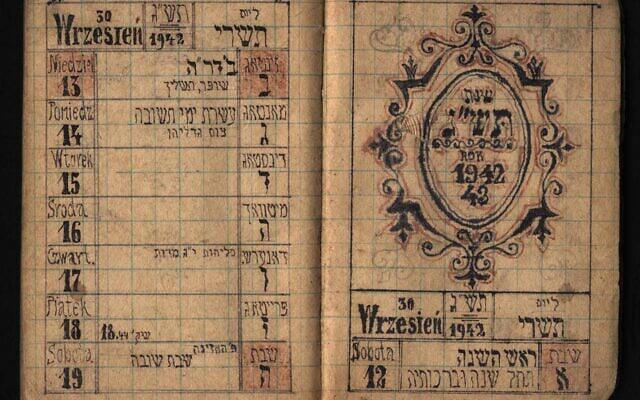 שנת
תש״ג
ROK
1942
43
30 תש״ג ליום
Wrzesień 1942 תשרי
Sobota ראש השנה שבת
12 תחל שנה וברכותיה א
30 תש״ג ליום
Wrzesień 1942 תשרי
Niedziel ב׳ דר״ה זונטאג
13 שופר, תשליך ב
Poniedz עשרת ימי תשובה מאנטאג
14 צום גדליהו ג
Wtorek דינסטאג
15 ד
Środa מיטוואך
16 ה
Czwart. סליחות י״ג מדות דאנערש.
17 ו
Piątek פרייטאג
18 18.44 שקי׳
Sobota שבת
19 שבת שובה